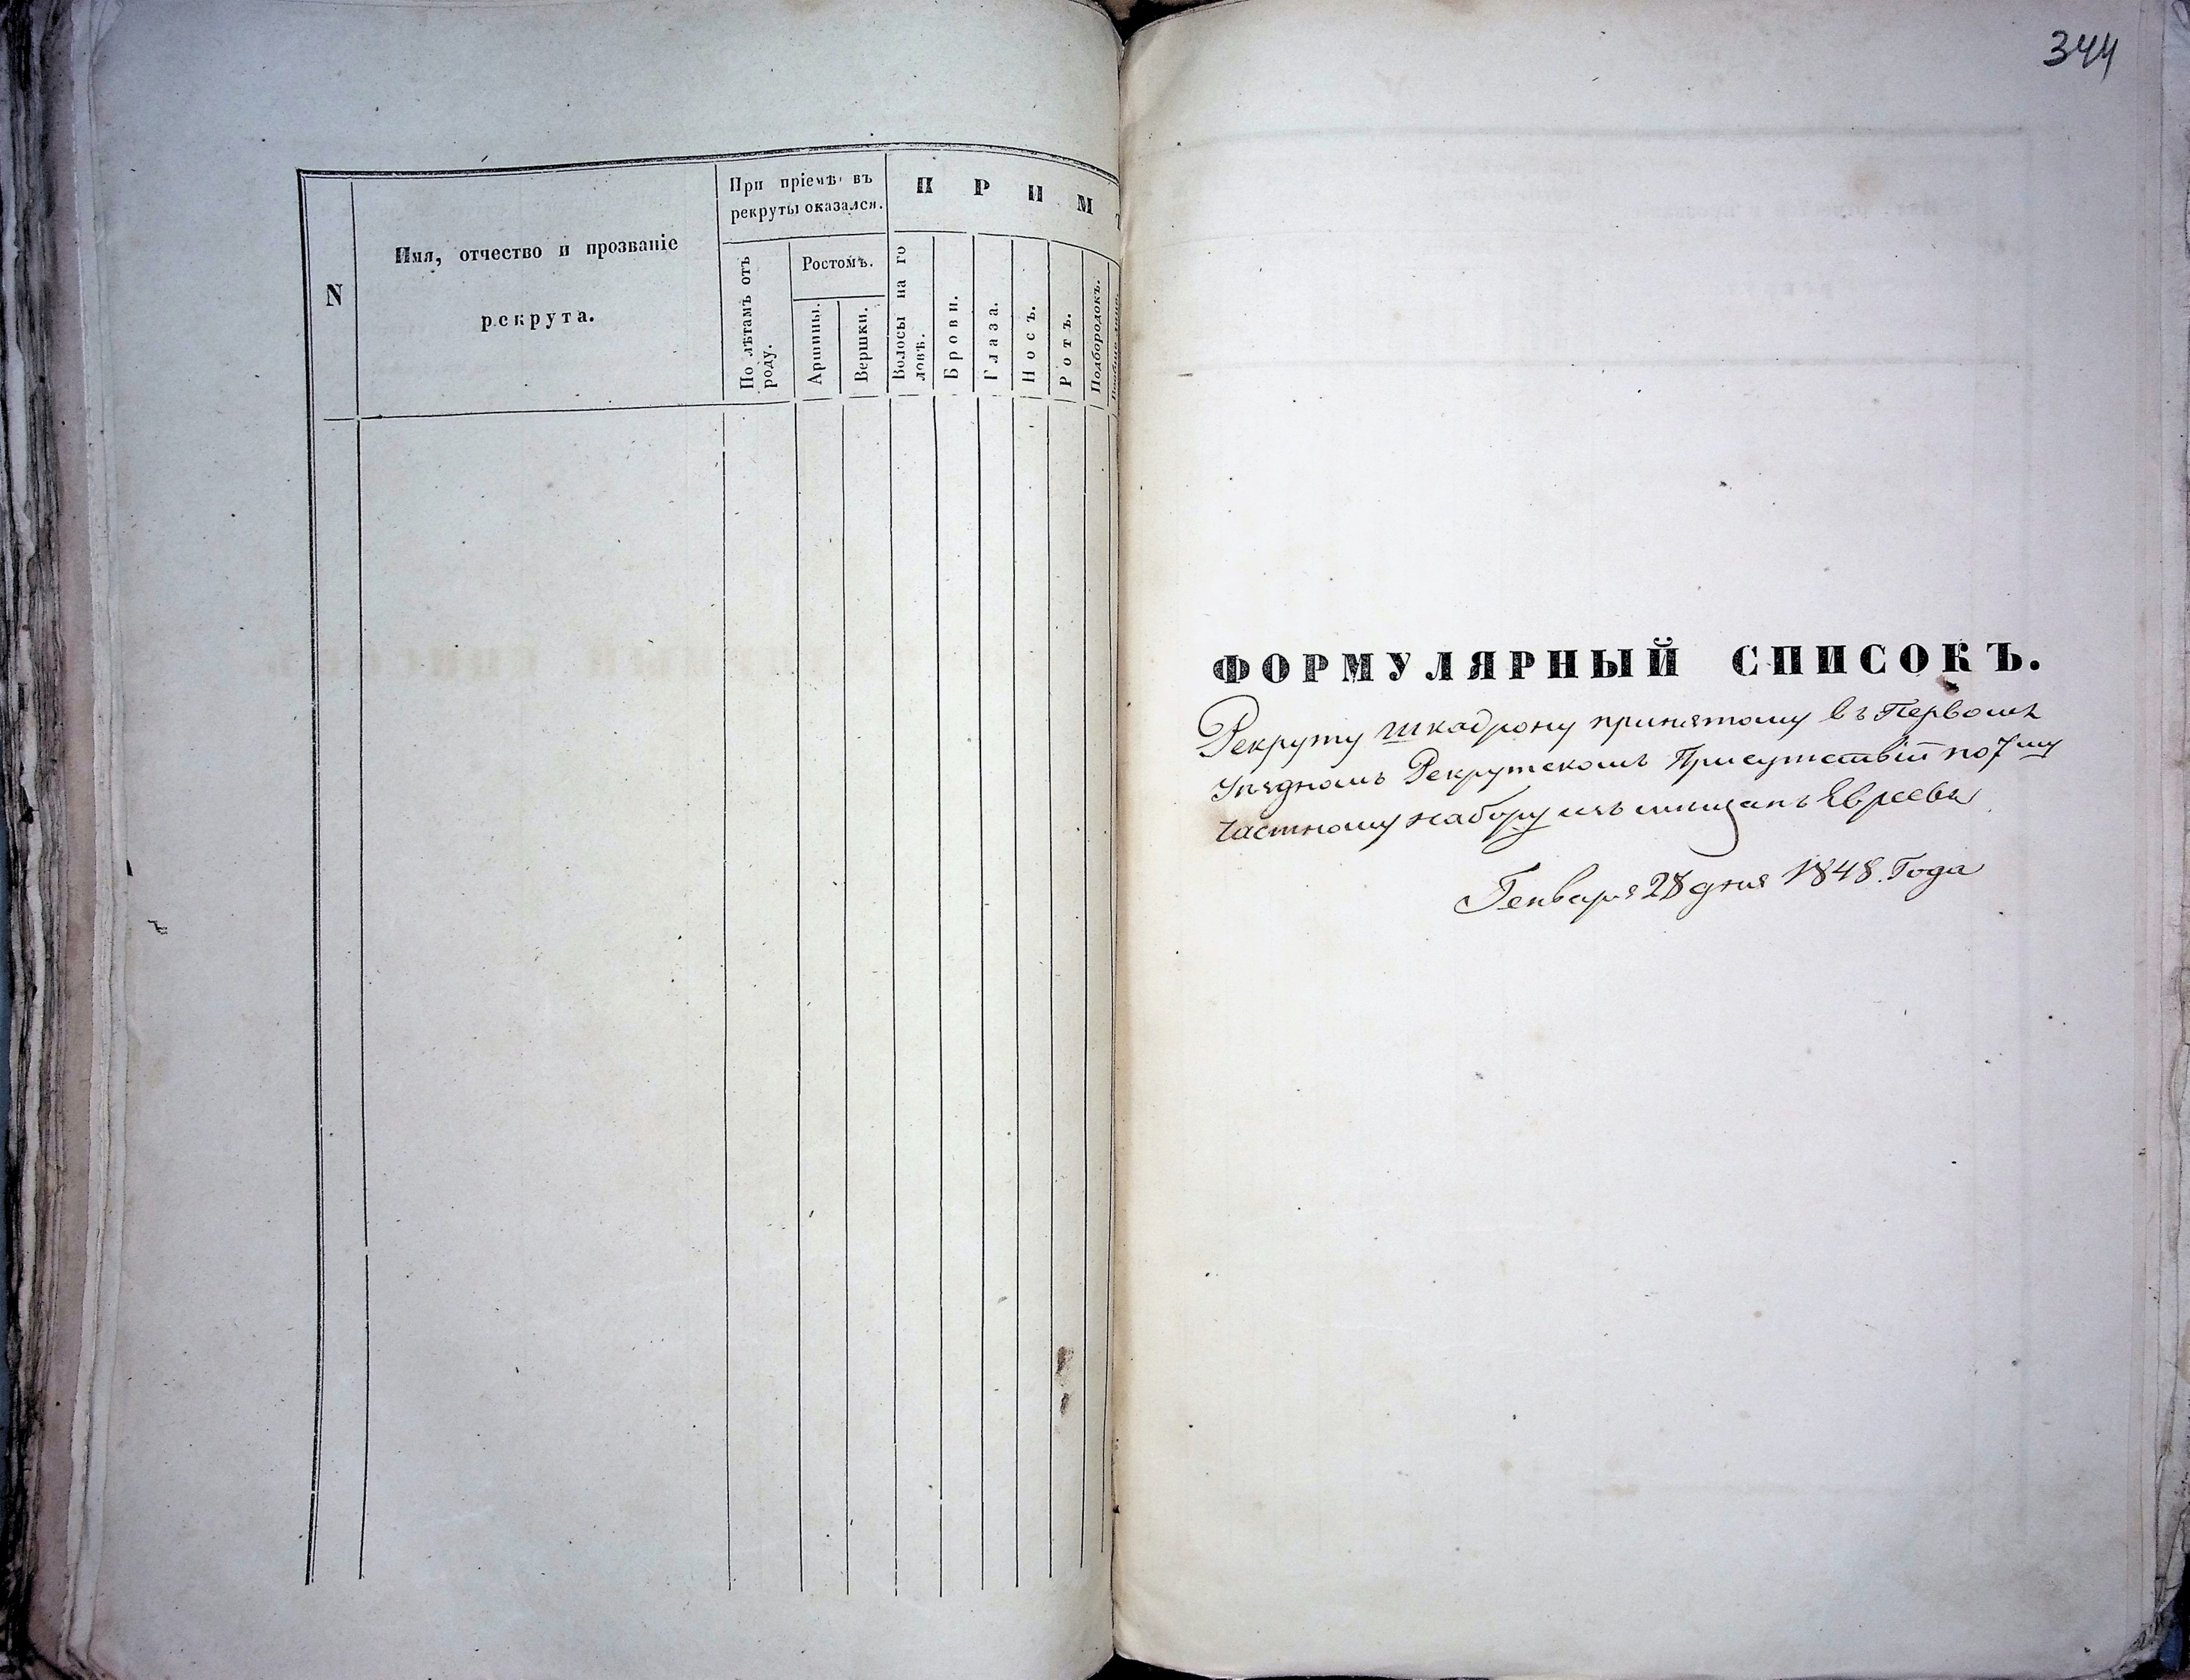 344
N
Имя, отчество и прозваніе
рекрута.
При пріемѣ въ
рекруты оказался.
По лѣтамъ отъ
роду.
Ростомъ.
Аршины.
Вершки.
П Р И М
Волосы на го
ловѣ.
Брови.
Глаза.
Носъ.
Ротъ.
Подбородокъ.
ФОРМУЛЯРНЫЙ СПИСОКЪ.
Рекруту принятому въ Первомъ
Уѣздномъ Рекрутскомъ Присутствіи по 7му
частному набору изъ мещанъ Евреевъ
Генваря 28 дня 1848. Года